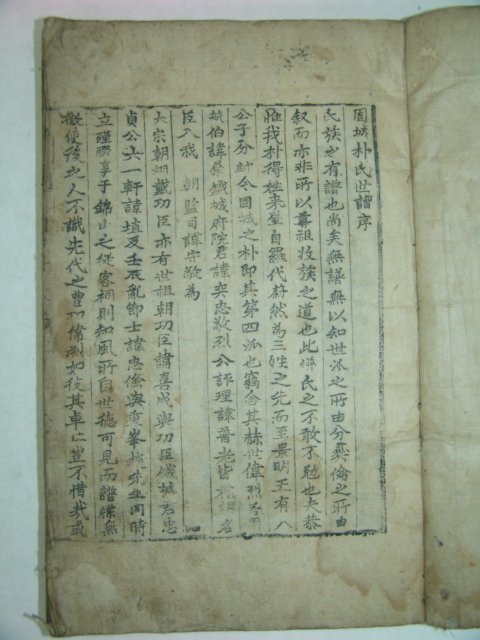 固城朴氏世譜序
氏族之有譜也尚矣無譜無以知世派之所由分彛倫之所由
叙而亦非所以尊祖收族之道也此譜氏之不敢不勉也夫恭
惟我朴得姓来肇自羅代蔚然為三姓之先而至景明王有八
公子分封今固城之朴即其第四派也竊念其赫世偉烈
城伯諱鐵城府院君諱奕忠敬烈公評理諱普老皆
臣入我 朝監司諱守敬為
太宗朝翊戴功臣亦有世祖朝功臣諱喜成與功臣鐵城君忠
貞公六一軒諱埴及壬辰亂節士諱忠係與重峯趙先生同時
立殣腏享于錦山之從容祠則知風所自世德可見而譜牒無
徵使後之人不識先代之豊功偉烈如彼其卓亡豈不惜哉或